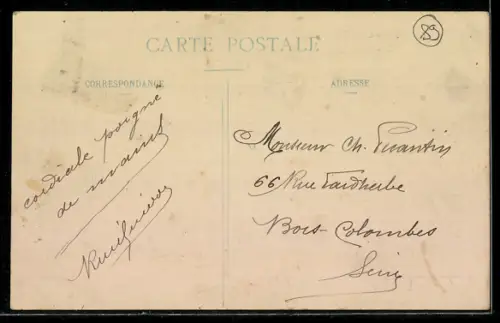 85
CARTE POSTALE
CORRESPONDANCE
ADRESSE
cordiale poigné
de mains
Monsieur Ch.
66 Rue Faidherbe
Bois-Colombes
Seine